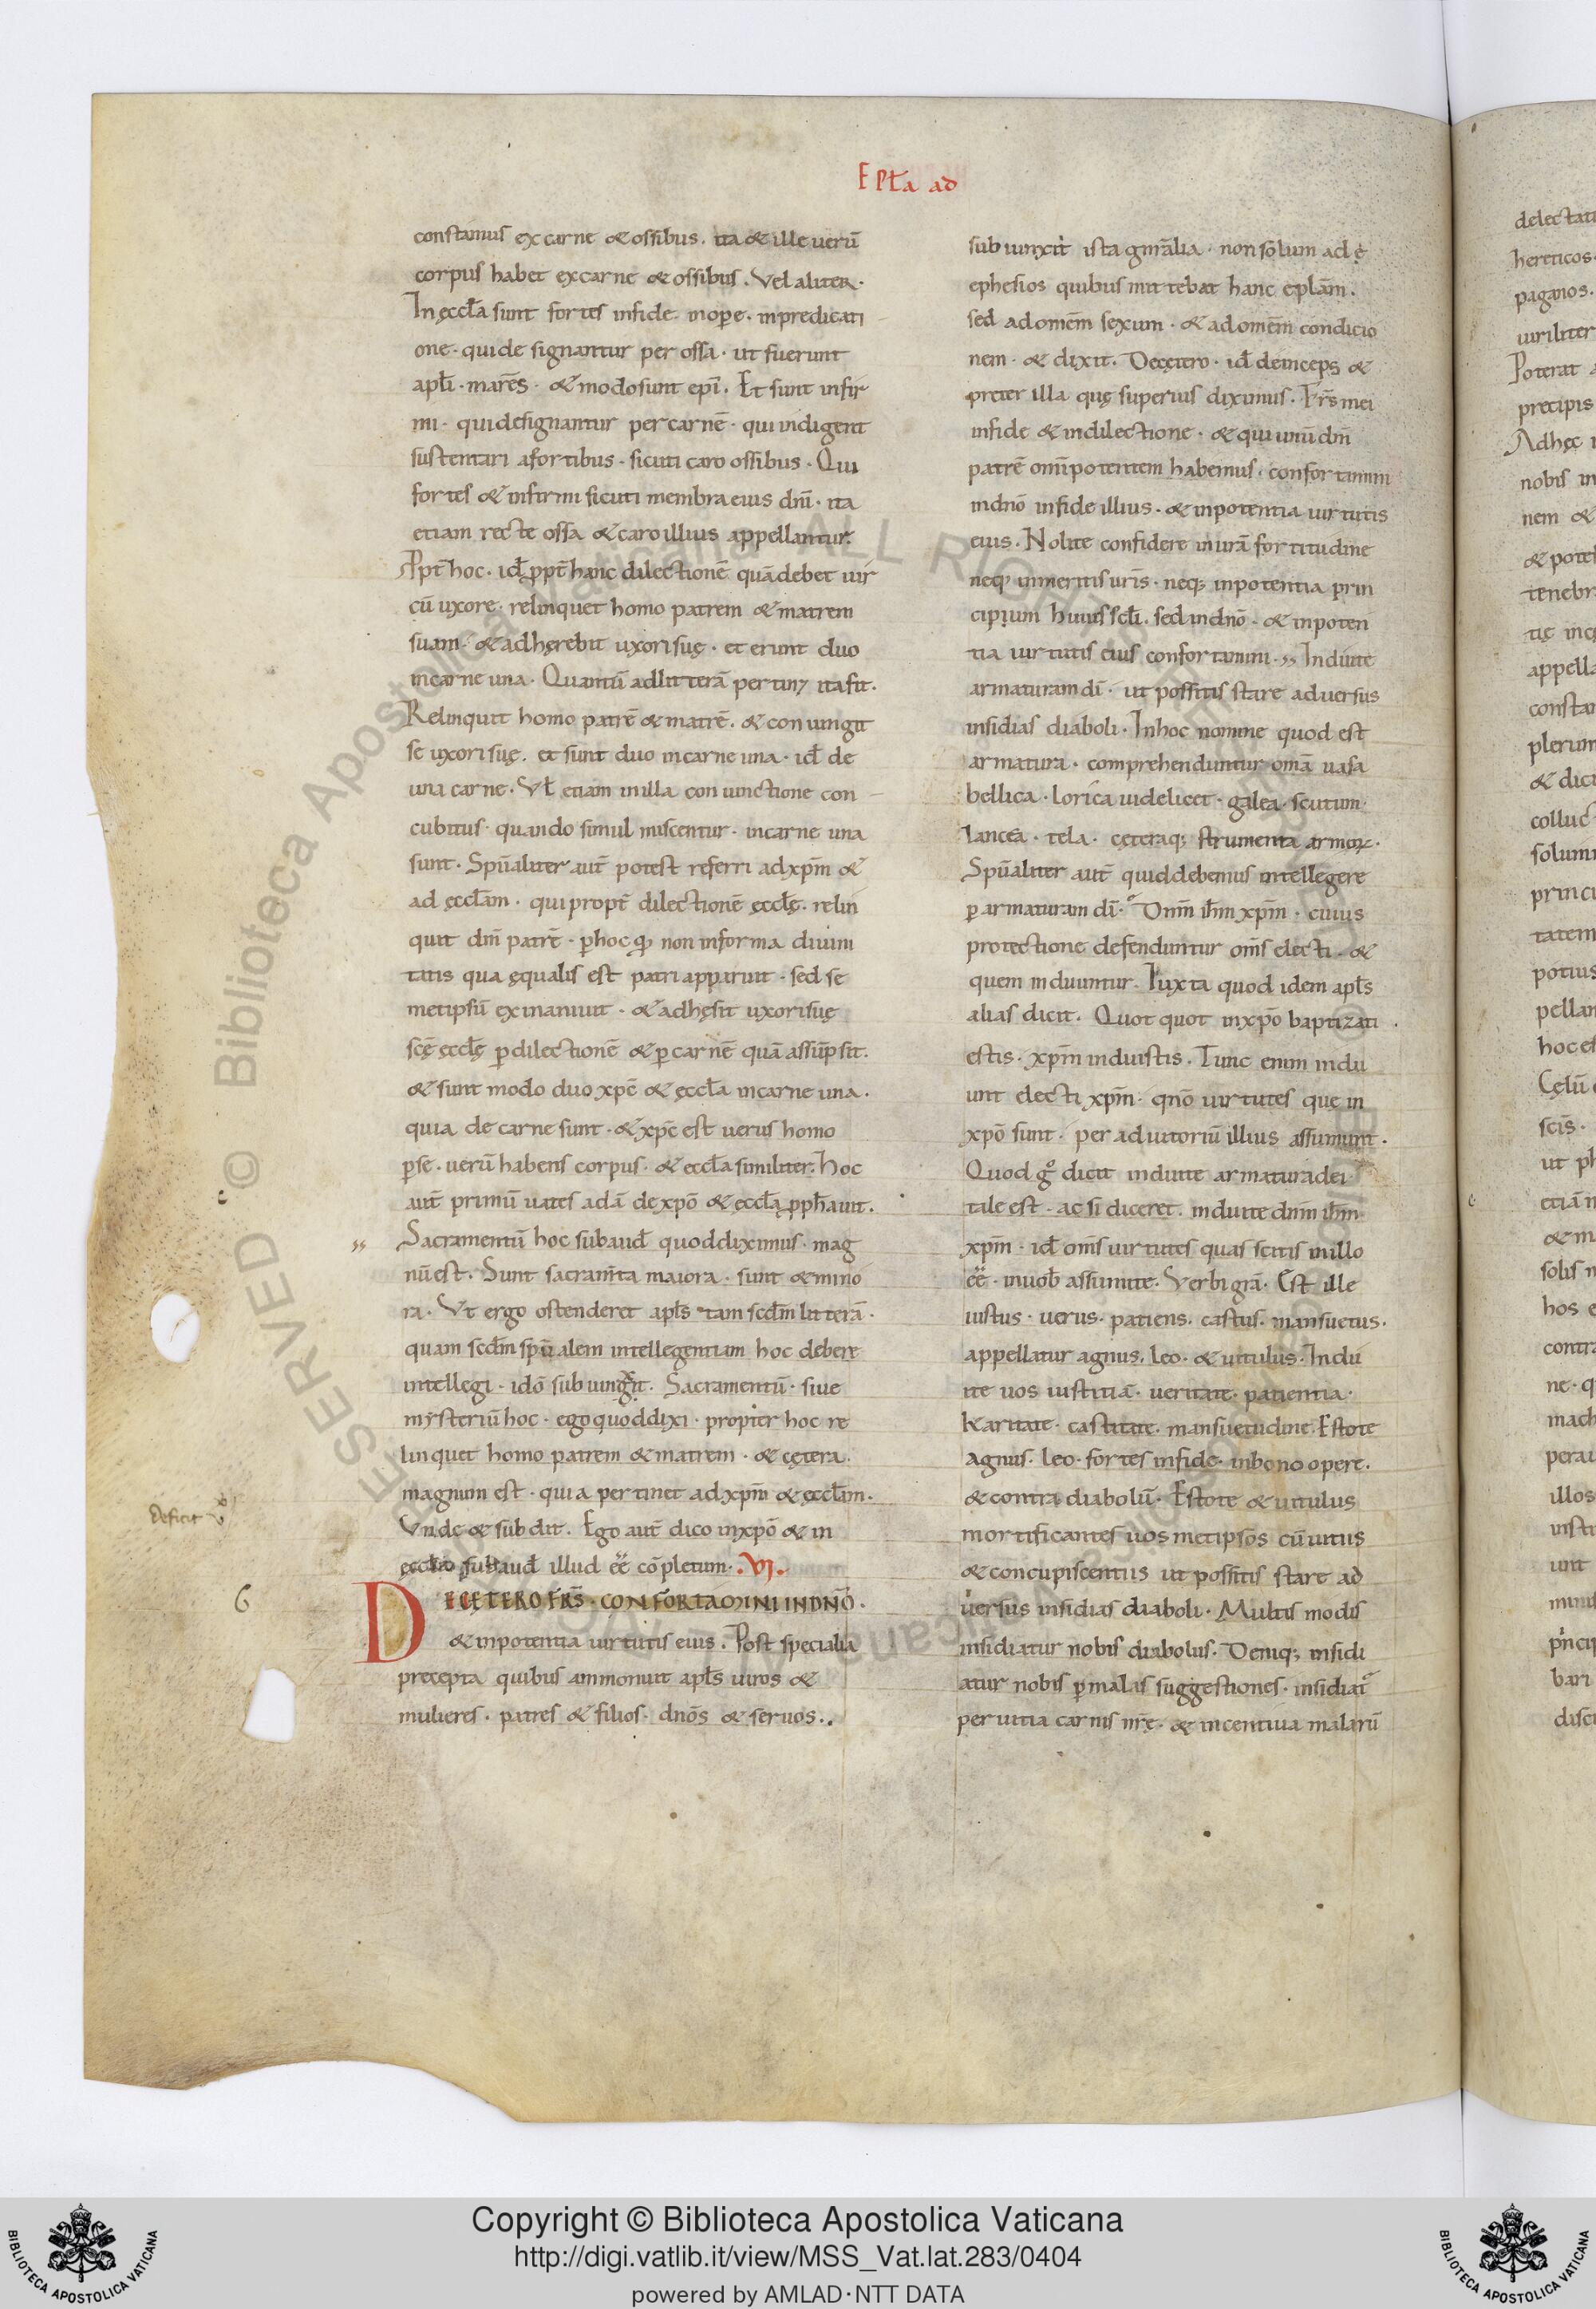 EPŁa ad
constamus ex carne & ossibus. ita & ille uerū
corpus habet ex carne & ossibus. Vel aliter.
In ęccła sunt fortes in fide. in ope. in predicati
one. qui designantur per ossa. ut fuerunt
apłi. mares. & modo sunt epi. Et sunt infir
mi. qui designantur per carnē. qui indigent
sustentari a fortibus. sicuti caro ossibus. Qui
fortes & infirmi sicuti membra eius dnī. ita
etiam recte ossa & caro illius appellantur.
Ppt hoc. id ppt hanc dilectionē quā debet uir
cū uxore. relinquet homo patrem & matrem
suam. & adhęrebit uxori suę. et erunt duo
in carne una. Quantū ad litterā pertin& ita fit.
Relinquit homo patrē & matrē. & coniungit
se uxori suę. et sunt duo in carne una. id de
una carne. Vł etiam in illa coniunctione con
cubitus. quando simul miscentur. in carne una
sunt. Spūaliter aut potest referri ad xpm &
ad ęccłam. qui propt dilectionē ęccłę. relin
quit dm patrē. p hoc qd non in forma diuini
tatis qua ęqualis est patri apparuit. sed se
metipsū exinaniuit. & adhęsit uxori suę
scę ęccłę p dilectionē & p carnē quā assūpsit.
& sunt modo duo xpc & ęccła in carne una.
quia de carne sunt. & xpc est uerus homo
p se. uerū habens corpus. & eccła similiter. Hoc
aut primū uates adā de xpō & ęccła pphauit.
Sacramentū hoc subaud quod diximus. mag
nū est. Sunt sacramta maiora. sunt & mino
ra. Vt ergo ostenderet apłs tam scdm litterā.
quam scdm spūalem intellegentiam hoc debere
intellegi. idō subiungit. Sacramentū. siue
mysteriū hoc. ego quod dixi. propter hoc re
linquet homo patrem & matrem. & cętera.
magnum est. quia pertinet ad xpm & ęccłam.
Deficit
Vnde & subdit. Ego aut dico in xpō & in
ęccła subaud illud ee cōpletum. .VI.
6
DE CĘTERO FRS. CONFORTAMINI IN DNŌ.
& in potentia uirtutis eius. Post specialia
precepta quibus ammonuit apłs uiros &
mulieres. patres & filios. dnōs & seruos..
subiunxit ista gnralia. non solum ad ę
ephesios quibus mittebat hanc epłam.
sed ad omem sexum. & ad omem condicio
nem. & dixit. De cętero. id deinceps &
preter illa quę superius diximus. Frs mei
in fide & in dilectione. & qui unū dm
patrē omipotentem habemus. confortamini
in dnō in fide illius. & in potentia uirtutis
eius. Nolite confidere in urā fortitudine
neq; in meritis uris. neq; in potentia prin
cipium huius scłi. sed in dnō. & in poten
tia uirtutis eius confortamini. Induite
armaturam di. ut possitis stare aduersus
insidias diaboli. In hoc nomine quod est
armatura. comprehenduntur omā uasa
bellica. lorica uidelicet. galea. scutum.
lancea. tela. cęteraq; strumenta armor.
Spūaliter aut quid debemus intellegere
p armaturam di. Dnm ihm xpm. cuius
protectione defenduntur oms electi. &
quem induuntur. Iuxta quod idem apłs
alias dicit. Quotquot in xpō baptizati
estis. xpm induistis. Tunc enim indu
unt electi xpm. qnō uirtutes que in
xpō sunt. per adiutoriū illius assumunt.
Quod g dicit induite armatura dei
tale est. ac si diceret. induite dnm ihm
xpm. id oms uirtutes quas scitis in illo
ee. in uob assumite. Verbi grā. Est ille
iustus. uerus. patiens. castus. mansuetus.
appellatur agnus. leo. & uitulus. Indu
ite uos iustitiā. ueritate. patientia.
karitate. castitate. mansuetudine. Estote
agnus. leo. fortes in fide. in bono opere.
& contra diabolū. Estote & uitulus
mortificantes uosmetipsos cū uitiis
& concupiscentiis ut possitis stare ad
uersus insidias diaboli. Multis modis
insidiatur nobis diabolus. Deniq; insidi
atur nobis p malas suggestiones. insidiat
per uitia carnis nrę. & incentiua malarū
Copyright © Biblioteca Apostolica Vaticana
http://digi.vatlib.it/view/MSS_Vat.lat.283/0404
powered by AMLAD·NTT DATA
BIBLIOTECA APOSTOLICA VATICANA
BIBLIOTECA APOSTOLICA VATICANA